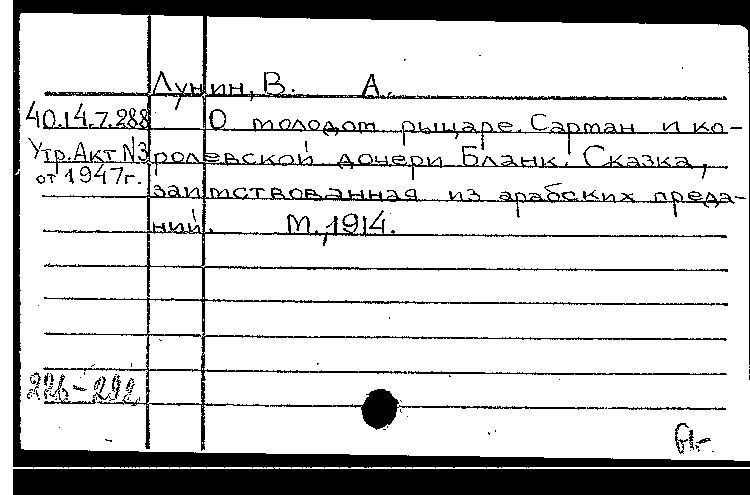 Лунин, В. А.
40.14.7.288 О молодом рыцаре Сарман и ко-
Утр. Акт N3 ролевской дочери Бланк. Сказка,
от 1947г.
заимствованная из арабских преда-
ний. М., 1914.
226-292